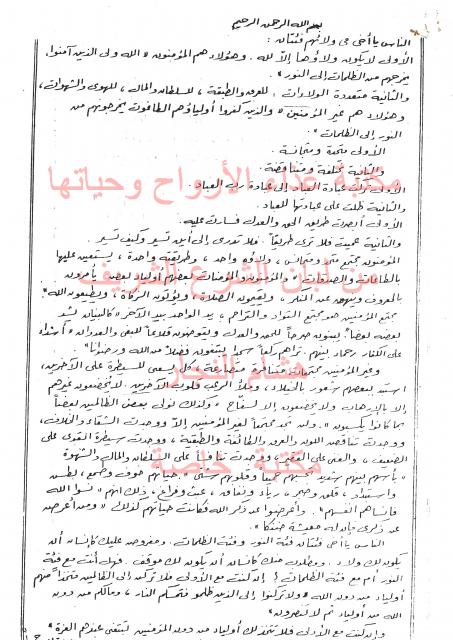 بسم الله الرحمن الرحيم
الناس يا أخي في ولائهم فئتان :
الأولى لا يكون ولاؤها إلا لله . وهؤلاء هم المؤمنون « الله ولي الذين آمنوا،
يخرجهم من الظلمات إلى النور »
والثانية متعددة الولاءات . للعرق والطبقة ، للسلطان والمال ، للهوى والشهوات ،
وهؤلاء هم غير المؤمنين « والذين كفروا أولياؤهم الطاغوت يخرجونهم من
النور إلى الظلمات » .
الأولى متحدة ومتجانسة .
والثانية مختلفة ومتناقضة .
مكتبة غذاء الأرواح وحياتها
الأولى تركت عبادة العباد إلى عبادة رب العباد .
والثانية ظلت على عبادتها للعباد .
الأولى أبصرت طريق الحق والعدل فسارت عليه .
والثانية عميت فلا ترى طريقاً . فلا تدري إلى أين تسير وكيف تسير
المؤمنون مجتمع متحد ومتجانس ، ولاؤه واحد ، وطريقته واحدة ، يستعين عليها
من لبان الشرع الشريف
بالطاعات والصدقات « والمؤمنون والمؤمنات بعضهم أولياء بعض يأمرون
بالمعروف وينهون عن المنكر ، ويقيمون الصلاة ، ويؤتون الزكاة ، ويطيعون الله »
مجتمع المؤمنين هو مجتمع التواد والتراحم ، يد الواحد بيد الآخر « كالبنيان يشد
بعضه بعضاً » يبنون صرحاً للحق والعدل ويقوضون قلاعاً للبغي والعدوان « أشداء
على الكفار رحماء بينهم تراهم ركعاً سجداً يبتغون فضلاً من الله ورضواناً »
هشام النجار
وغير المؤمنين مجتمعات متنافرة متصارعة ، كل يسعى للسيطرة على الآخرين،
استبد ببعضهم شعور بالخيلاء ، وملأ الرعب قلوب الآخرين . لا يخضعون غيرهم
إلا بالإرهاب ولا يخضعون إلا لسفاح « وكذلك نولي بعض الظالمين بعضاً
بما كانوا يكسبون » . ولن تجد مجتمعاً لغير المؤمنين إلا ووجدت الشقاء والخلاف،
ووجدت تناقض اللون والعرق والطائفة والطبقية ، ووجدت سيطرة القوي على
الضعيف ، والغني على الفقير ، ووجدت تنافساً على السلطان والمال والشهوة
مكتبة خاصة
« بأسهم بينهم شديد تحسبهم جميعاً وقلوبهم شتى » حياتهم خوف وطمع ، بطش
واستبداد ، قلق وضجر ، رياء ونفاق ، عبث وفراغ ، ذلك أنهم « نسوا الله
فأنساهم أنفسهم » وأعرضوا عن ذكر الله فكانت حياتهم كذلك « ومن أعرض
عن ذكري فإن له معيشة ضنكاً » .
الناس يا أخي فئتان فئة النور وفئة الظلمات . ومفروض عليك كإنسان أن
يكون لك ولاء . ومطلوب منك كإنسان أن يكون لك موقف . فهل أنت مع فئة
النور أم مع فئة الظلمات ؟ إن كنت مع الأولى فلا تركن إلى الظالمين فتتخذ منهم
أولياء من دون الله « ولا تركنوا إلى الذين ظلموا فتمسكم النار ، وما لكم من دون
الله من أولياء ثم لا تنصرون »
وإن كنت مع الأولى فلا تتخذ لك أولياء من دون المؤمنين لتبتغي عندهم العزة «